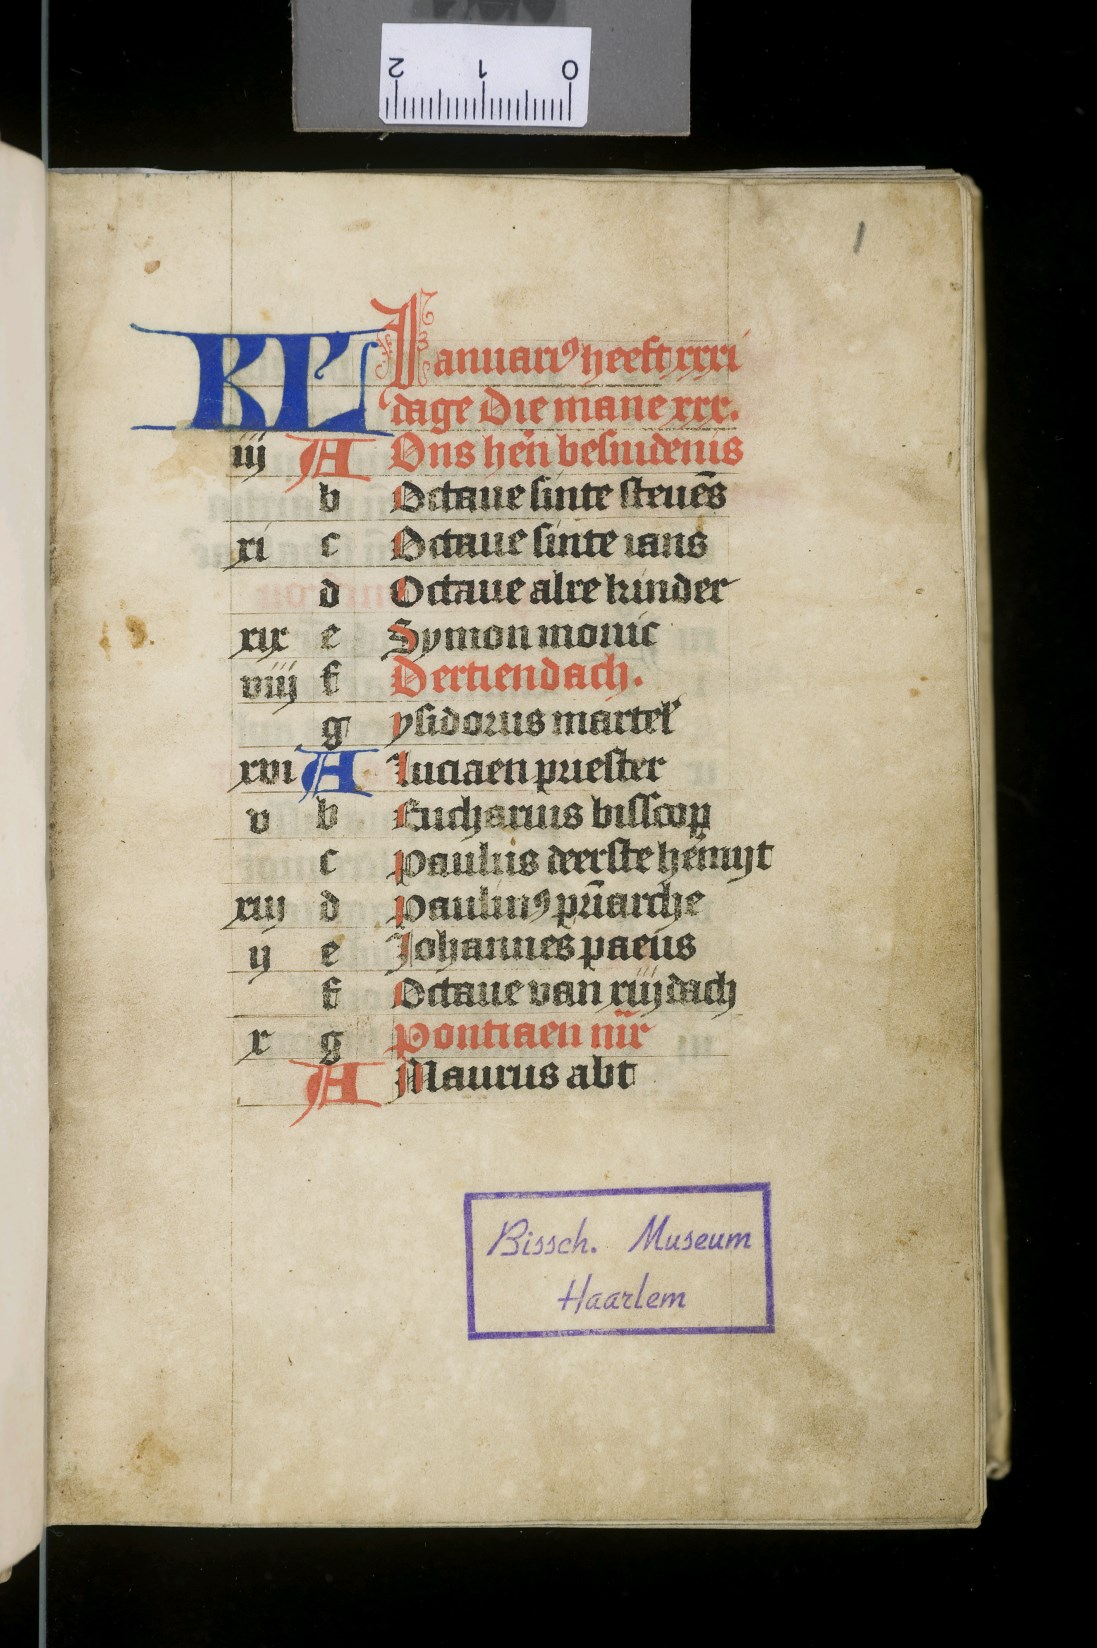 2 1 0
1
KL Januariꝰ heeft xxxi
dage Die mane xxx.
iij A Ons hẽn besnidenis
b Octaue sinte steuẽs
xi c Octaue sinte ians
d Octaue alre kinder
xix e Symon monic
viij f Dertiendach.
g ysidorus martel'
xvi A luciaen priester
v b Eucharius bisscop
c paulus deerste hẽmijt
xiij d paulinꝰ pr̃iarche
ij e Johannes paeus
f Octaue van xiijdach
x g pontiaen mr̃
A Maurus abt
Bissch. Museum
Haarlem